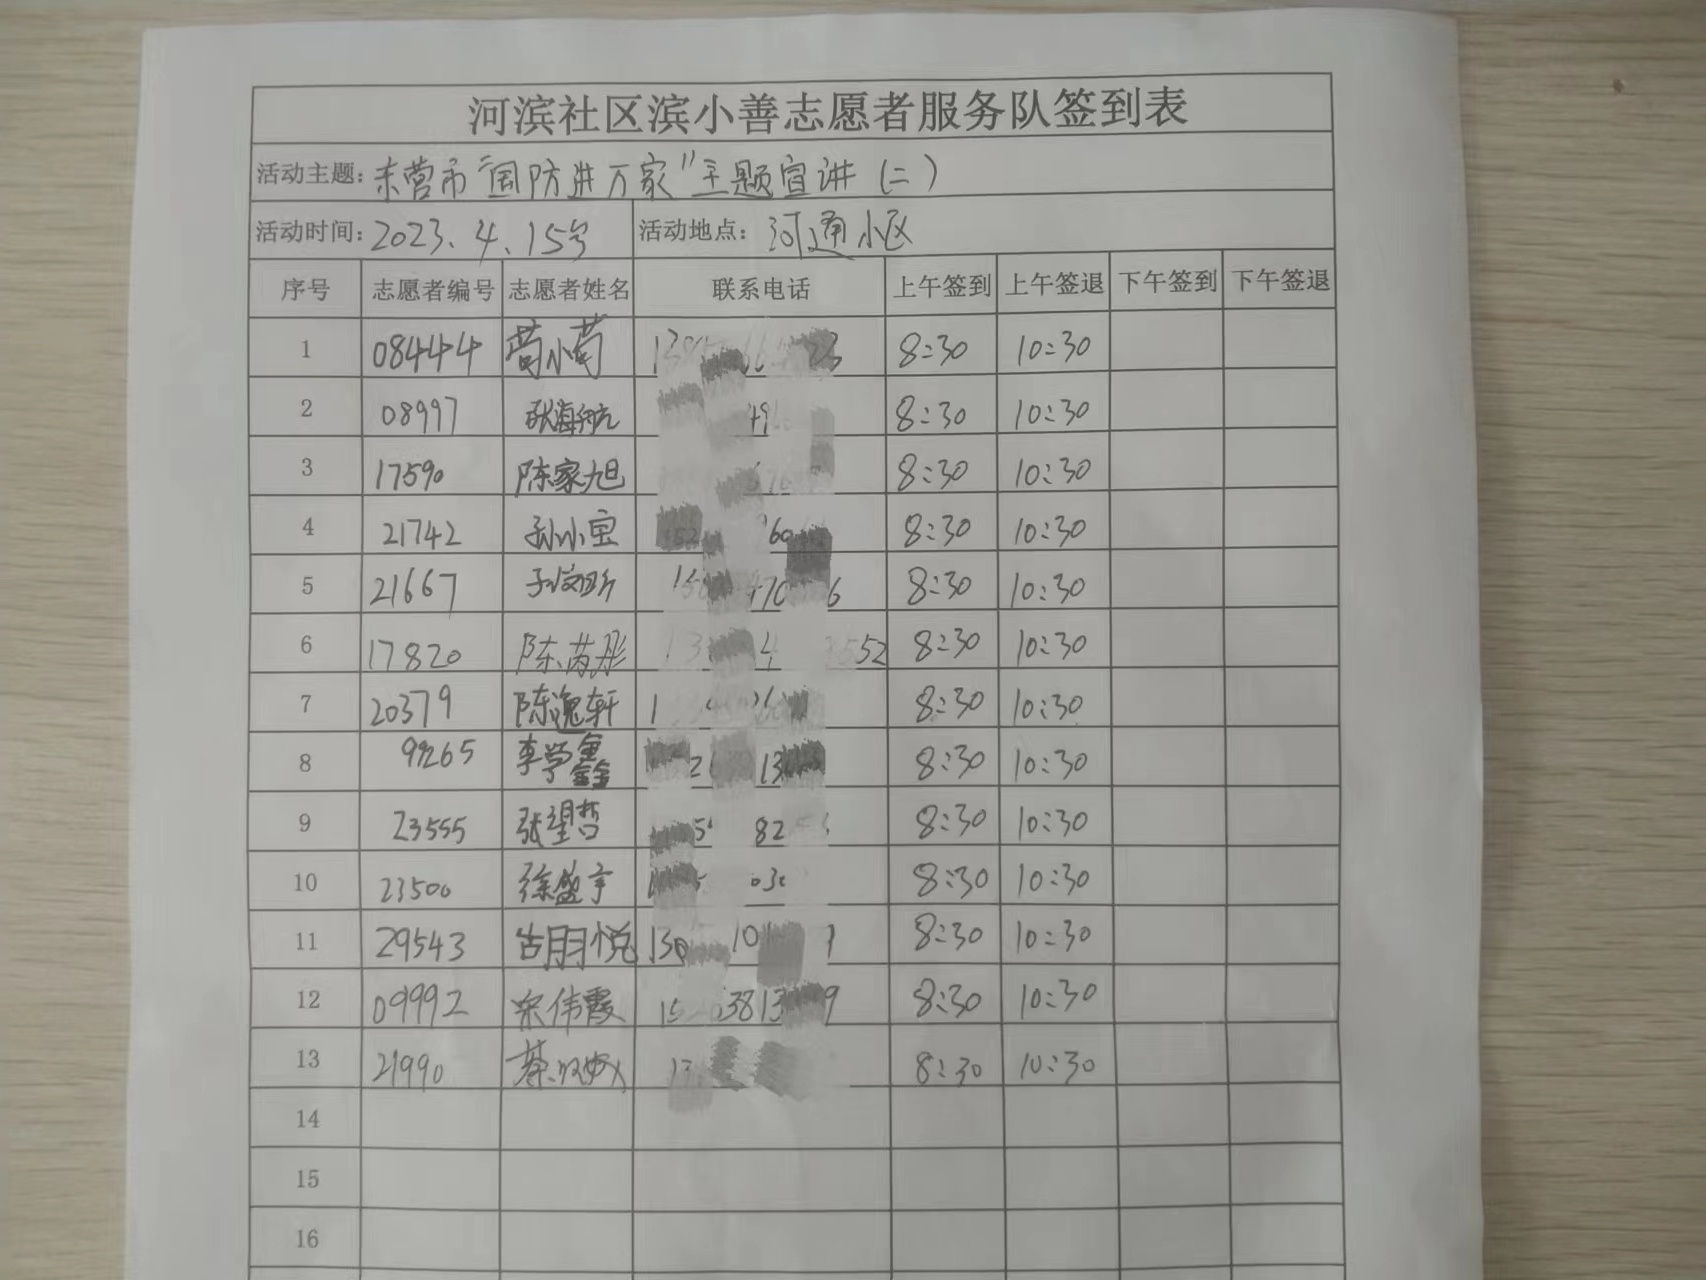 河滨社区滨小善志愿者服务队签到表
活动主题: 东营市"国防进万家"主题宣讲(二)
活动时间: 2023.4.15号 活动地点: 河通小区
序号 志愿者编号 志愿者姓名 联系电话 上午签到 上午签退 下午签到 下午签退
1 08444 8:30 10:30
2 08997 张海航 8:30 10:30
3 17590 陈家旭 8:30 10:30
4 21742 孙小宝 8:30 10:30
5 21667 8:30 10:30
6 17820 陈芮彤 8:30 10:30
7 20379 陈逸轩 8:30 10:30
8 99265 李学鑫 8:30 10:30
9 23555 张望哲 8:30 10:30
10 23500 徐盛宇 8:30 10:30
11 29543 8:30 10:30
12 09992 宋伟霞 8:30 10:30
13 21990 8:30 10:30
14
15
16